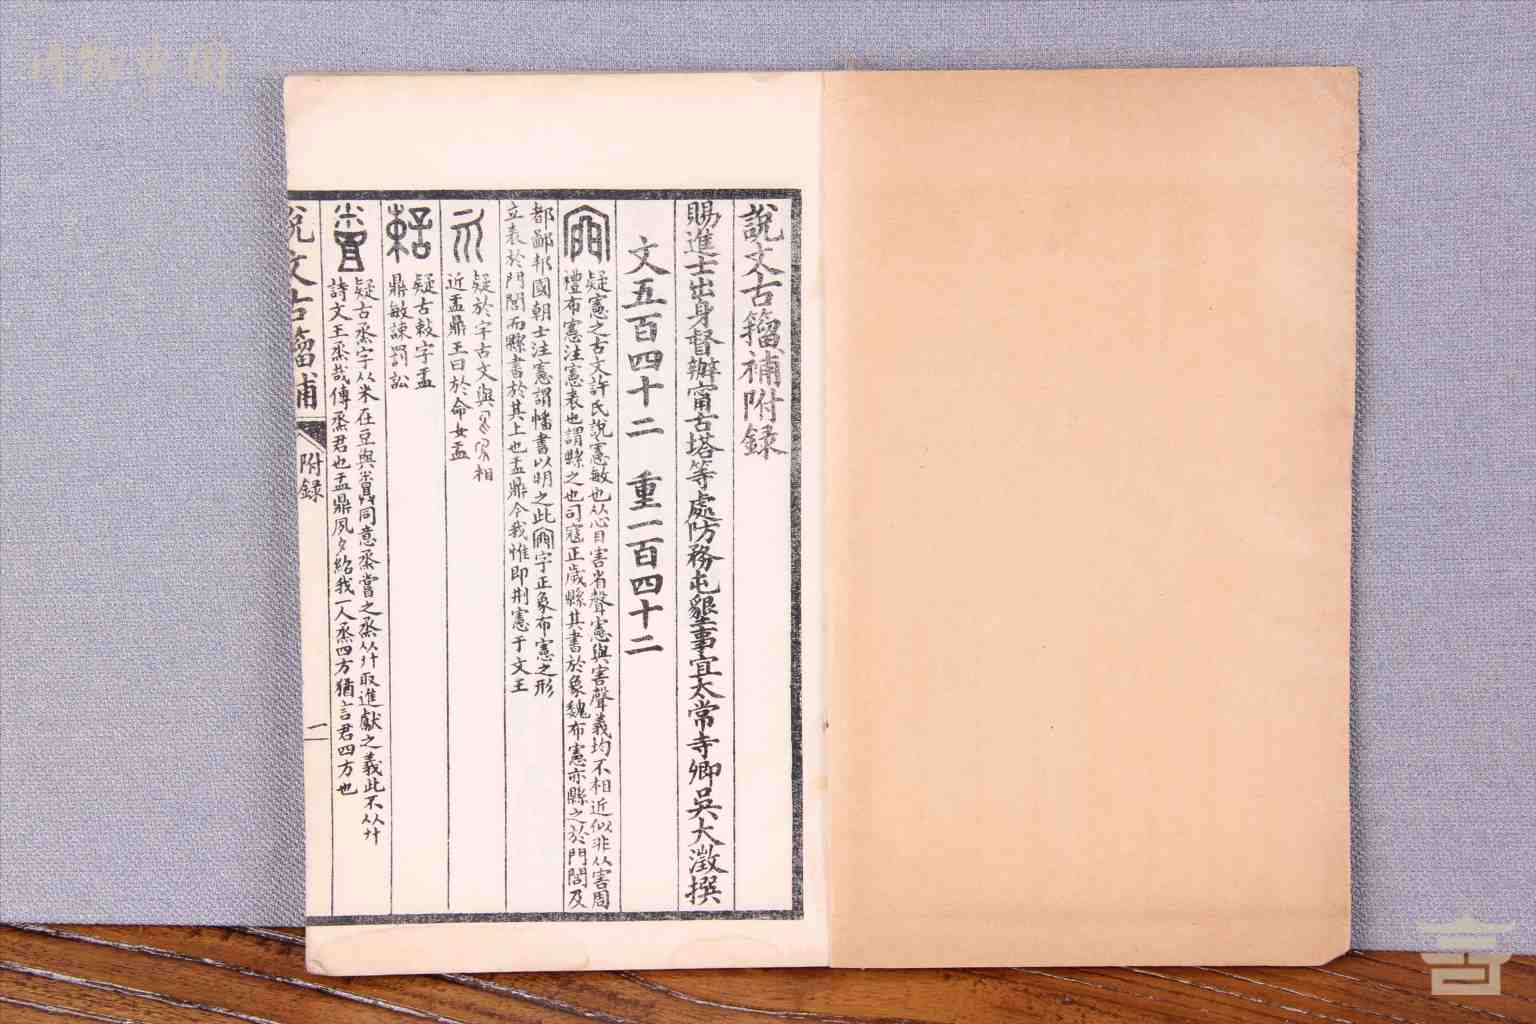 說文古籀補附錄
賜進士出身督辦甯古塔等處防務屯墾事宜太常寺卿吳大澂撰
文五百四十二 重一百四十二
疑憲之古文許氏說憲敏也从心目害省聲憲與害聲義均不相近似非从害周
禮布憲注憲表也謂縣之也司寇正歲縣其書於象魏布憲亦縣之於門閭及
都鄙邦國朝士注憲謂幡書以明之此字正象布憲之形
立表於門閭而縣書於其上也盂鼎令我惟即刑憲于文王
疑於字古文與相
近盂鼎王曰於命女盂
疑古敕字盂
鼎敏諫罰訟
疑古烝字从米在豆與同意烝嘗之烝从廾取進獻之義此不从廾
詩文王烝哉傳烝君也盂鼎夙夕紹我一人烝四方猶言君四方也
說文古籀補 附錄 一